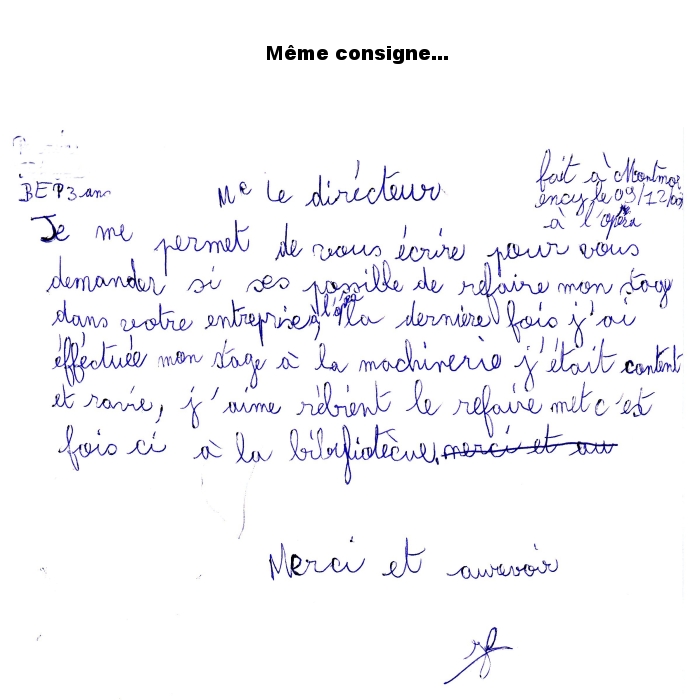 Même consigne...
BEP3 ans
Mr le dirécteur
fait à Montmor
ency le 09/12/
à l'opéra
Je me permet de vous écrire pour vous
demander si ses possible de refaire mon stage
dans votre entreprise, à l'opéra la dernière fois j'ai
éfféctuée mon stage à la machinerie j'était content
et ravie, j'aime rébient le refaire met c'est
fois ci à la
merci et au
Merci et aurevoir